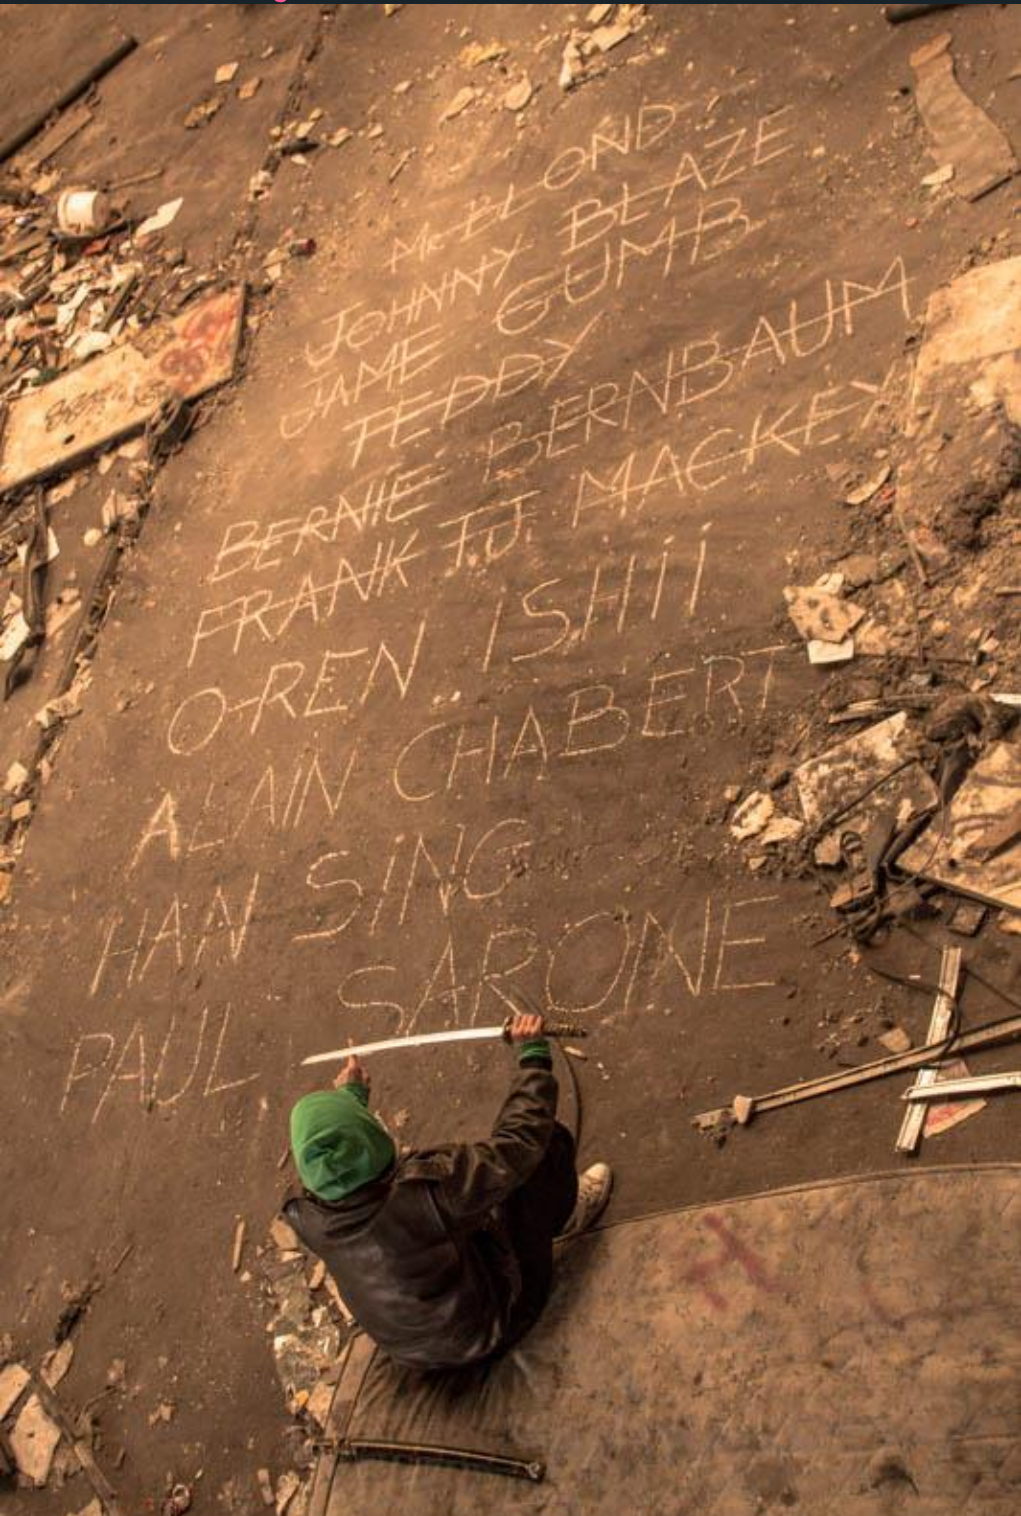 Mr BLOND
JOHNNY BLAZE
JAME GUMB
TEDDY
BERNIE BERNBAUM
FRANK T.J. MACKEY
O-REN ISHII
ALAIN CHABERT
HAN SING
PAUL SARONE